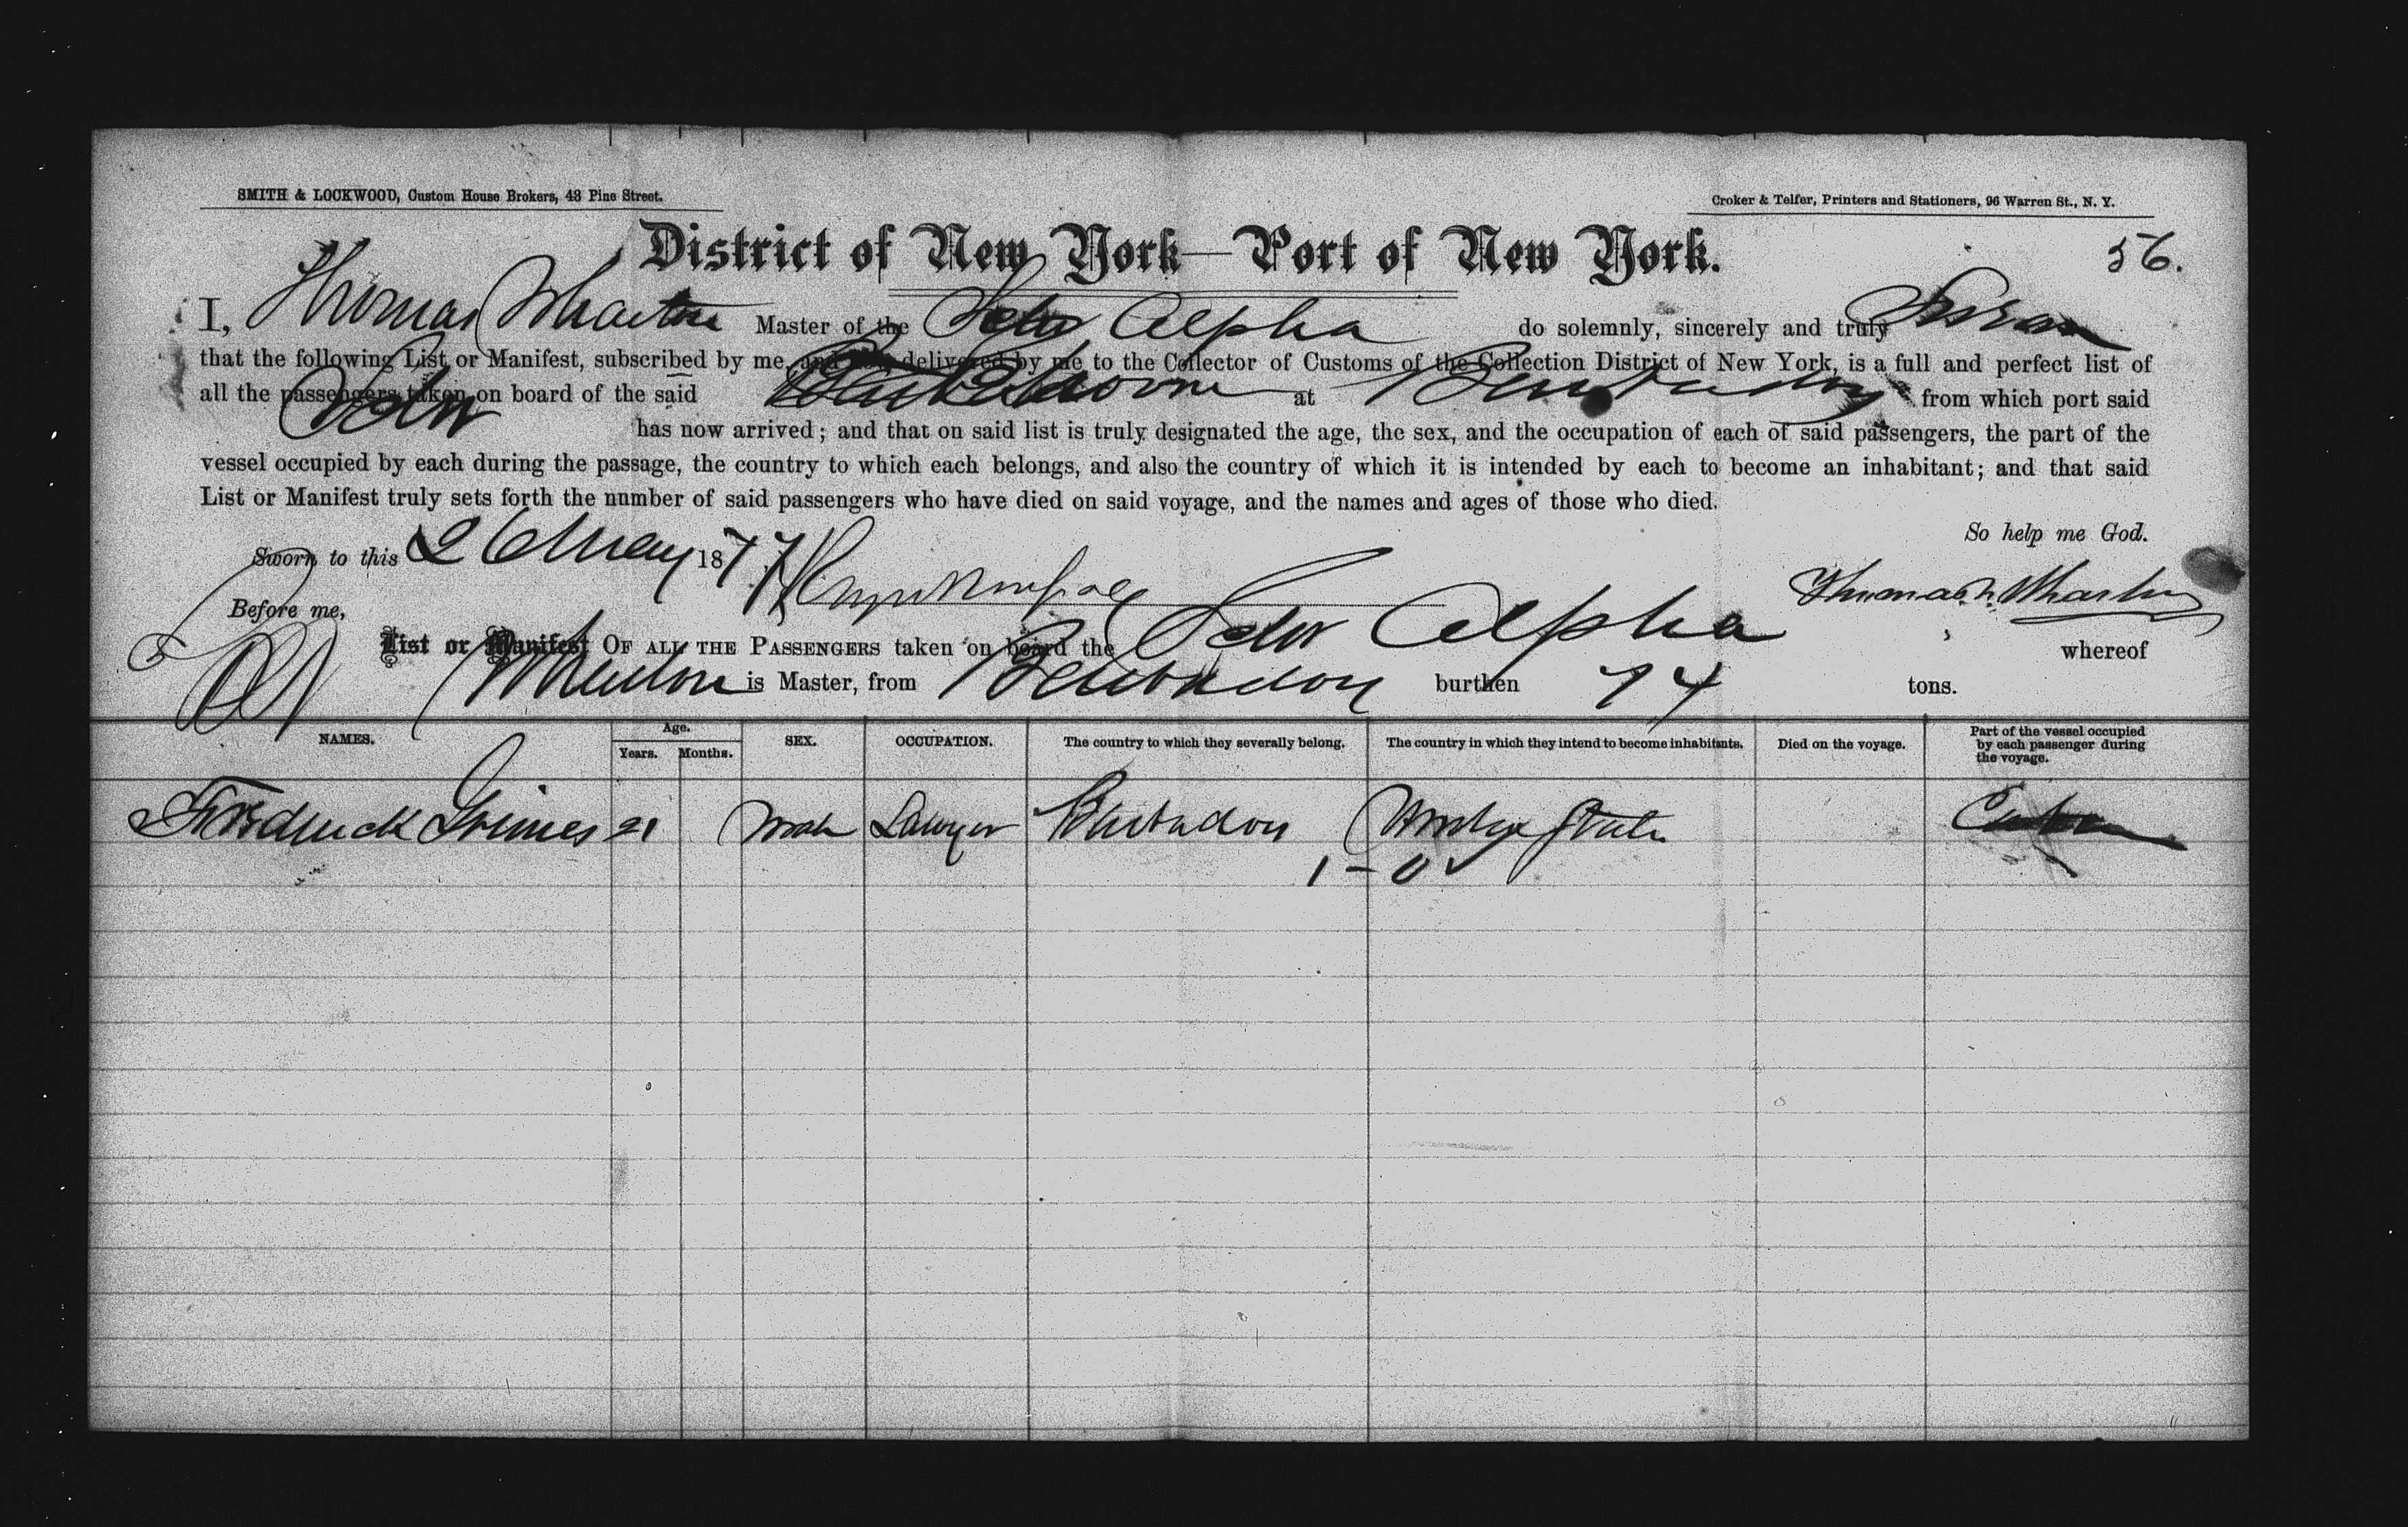 SMITH & LOCKWOOD, Custom House Brokers, 43 Pine Street.
Croker & Telfer, Printers and Stationers, 96 Warren St., N. Y.
District of New York—Port of New York.
56.
I, Thomas Master of the Schr Alpha do solemnly, sincerely and truly Swear
that the following List or Manifest, subscribed by me, and now delivered by me to the Collector of Customs of the Collection District of New York, is a full and perfect list of
all the passengers taken on board of the said at from which port said
Schr has now arrived; and that on said list is truly designated the age, the sex, and the occupation of each of said passengers, the part of the
vessel occupied by each during the passage, the country to which each belongs, and also the country of which it is intended by each to become an inhabitant; and that said
List or Manifest truly sets forth the number of said passengers who have died on said voyage, and the names and ages of those who died.
So help me God.
Sworn to this 26 May 1877
Before me,
List or Manifest OF ALL THE PASSENGERS taken on board the Schr Alpha whereof
is Master, from burthen 74 tons.
NAMES. Age. Years. Months. SEX. OCCUPATION. The country to which they severally belong. The country in which they intend to become inhabitants. Died on the voyage. Part of the vessel occupied by each passenger during the voyage.
Frederick Grimes 21 Male Lawyer
1-0